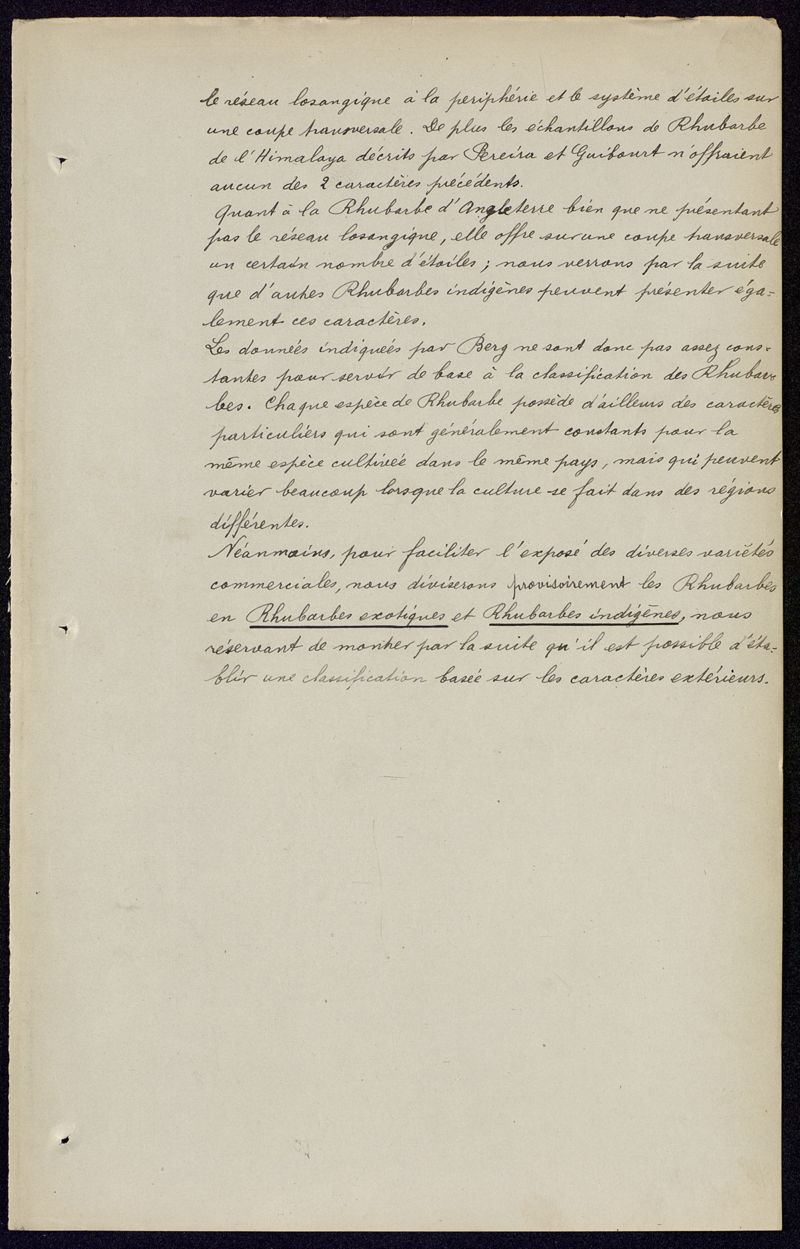 le réseau losangique à la periphérie et le système d'étoiles sur
une coupe transversale. De plus les échantillons de Rhubarbe
de l'Himalaya décrits par Pereira et Guibourt n'offraient
aucun des 2 caractères précédents.
Quant à la Rhubarbe d'Angleterre bien que ne présentant
pas le réseau losangique, elle offre sur une coupe transversale
un certain nombre d'étoiles ; nous verrons par la suite
que d'autres Rhubarbes indigènes peuvent présenter éga-
lement ces caractères.
Les données indiquées par Berg ne sont donc pas assez cons-
tantes pour servir de base à la classification des Rhubar-
bes. Chaque espèce de Rhubarbe possède d'ailleurs des caractères
particuliers qui sont généralement constants pour la
même espèce cultivée dans le même pays, mais qui peuvent
varier beaucoup lorsque la culture se fait dans des régions
différentes.
Néanmoins, pour faciliter l'exposé des diverses variétés
commerciales, nous diviserons provisoirement les Rhubarbes
en Rhubarbes exotiques et Rhubarbes indigènes, nous
réservant de montrer par la suite qu'il est possible d'éta-
blir une classification basée sur les caractères extérieurs.